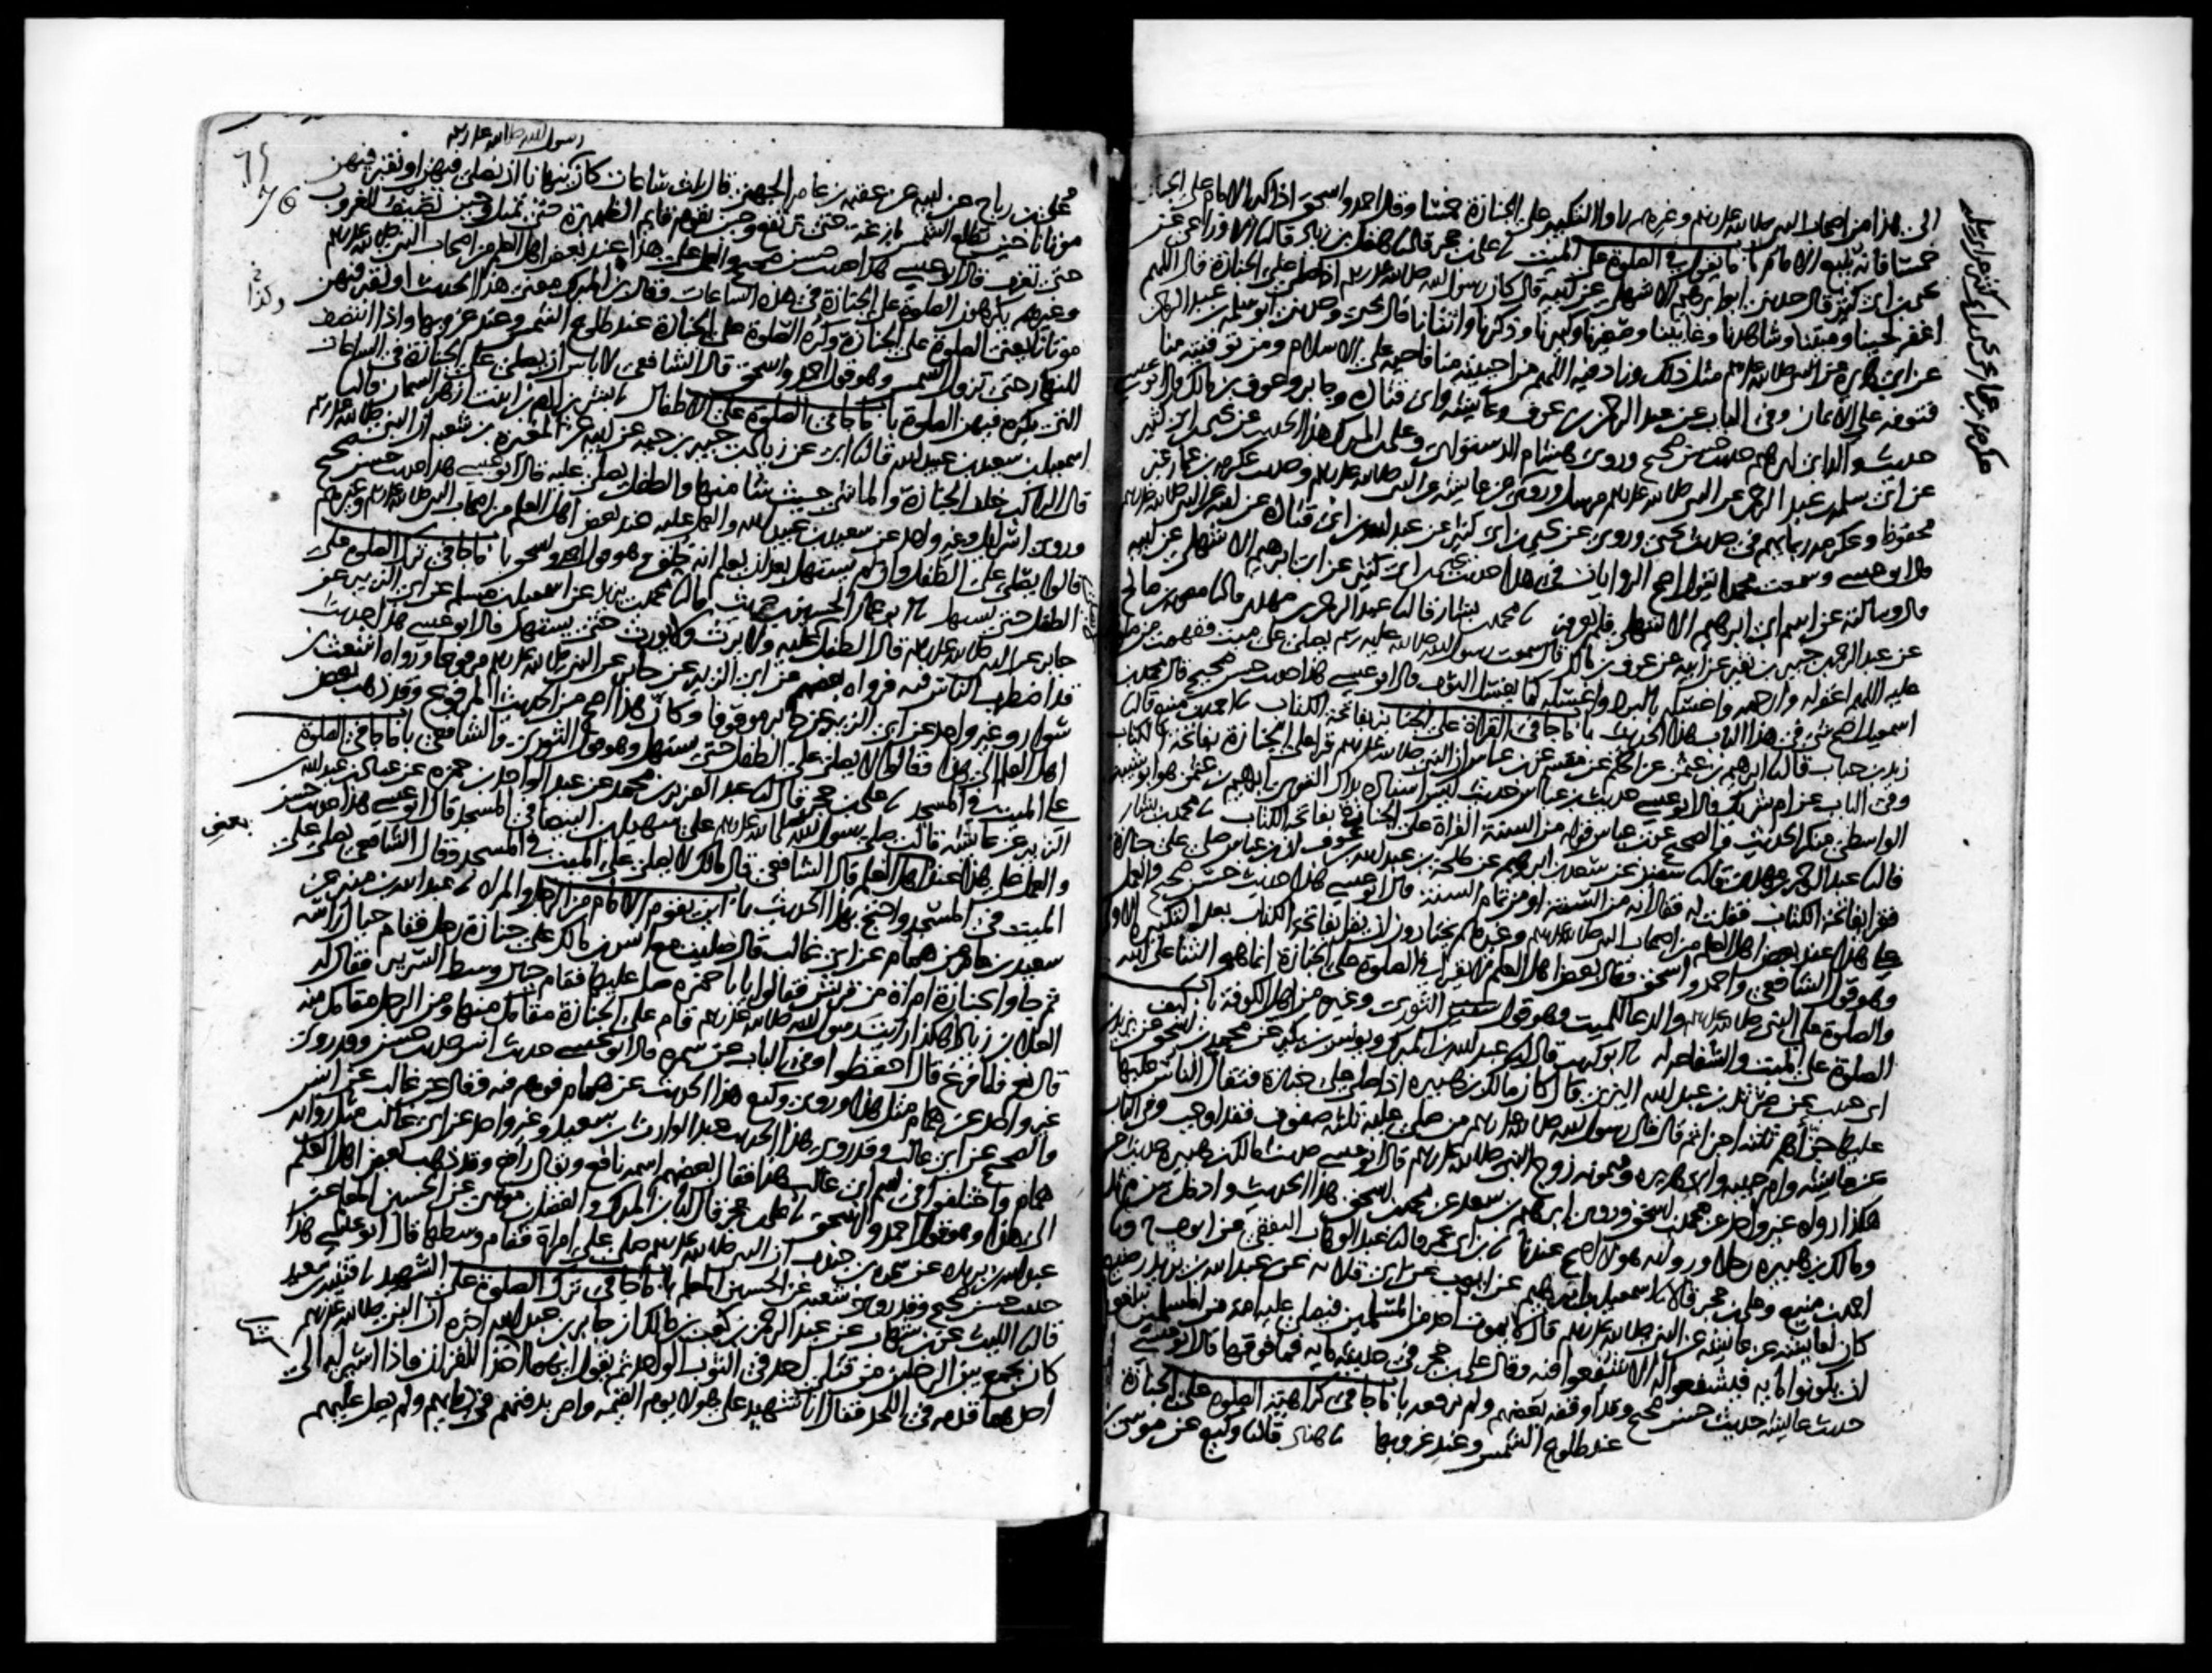 الى هذا من اصحاب النبي صلى الله عليه وسلم وغيرهم راوا التكبير على الجنازة خمسا وقال احمد واسحق اذا كبر الامام على الجنازة
خمسا فانه يتبع الامام باب ما يقول في الصلوة على الميت علي بن حجر قال هقل بن زياد قال الاوزاعي عن
يحيى بن ابي كثير قال حدثني ابو ابرهيم الاشهلي عن ابيه قال كان رسول الله صلى الله عليه وسلم اذا صلى على الجنازة قال اللهم
اغفر لحينا وميتنا وشاهدنا وغايبنا وصغيرنا وكبيرنا وذكرنا وانثانا قال يحيى وحدثني ابو سلمة بن عبد الرحمن
عن ابي هريرة عن النبي صلى الله عليه وسلم مثل ذلك وزاد فيه اللهم من احييته منا فاحيه على الاسلام ومن توفيته منا
فتوفه على الايمان وفي الباب عن عبد الرحمن بن عوف وعايشة وابي قتادة وجابر وعوف بن مالك قال ابو عيسى
حديث والد ابي ابرهيم حديث حسن صحيح وروى هشام الدستوائي وعلي بن المبرك هذا الحديث عن يحيى بن ابي كثير
عن ابي سلمة بن عبد الرحمن عن النبي صلى الله عليه وسلم مرسلا وروى عكرمة بن عمار عن
محفوظ وعكرمة ربما يهم في حديث يحيى وروي عن يحيى بن ابي كثير عن عبد الله بن ابي قتادة عن ابيه عن النبي صلى الله عليه وسلم
قال ابو عيسى وسمعت محمدا يقول اصح الروايات في هذا حديث يحيى بن ابي كثير عن ابي ابرهيم الاشهلي عن ابيه
قال وسالته عن اسم ابي ابرهيم الاشهلي فلم يعرفه محمد بن بشار قال عبد الرحمن بن مهدي قال معوية بن صالح
عن عبد الرحمن بن جبير بن نفير عن ابيه عن عوف بن مالك قال سمعت رسول الله صلى الله عليه وسلم يصلي على ميت ففهمت من صلوته
عليه اللهم اغفر له وارحمه واغسله بالبرد واغسله كما يغسل الثوب قال ابو عيسى هذا حديث حسن صحيح قال محمد بن
اسمعيل اصح شي في هذا الباب هذا الحديث باب ما جا في القراة على الجنازة بفاتحة الكتاب احمد بن منيع قال
زيد بن حباب قال ابرهيم بن عثمن عن الحكم عن مقسم عن ابن عباس ان النبي صلى الله عليه وسلم قرا على الجنازة بفاتحة الكتاب
وفي الباب عن ام شريك قال ابو عيسى حديث ابن عباس حديث ليس اسناده بذاك القوي ابرهيم بن عثمن هو ابو شيبة
الواسطي منكر الحديث والصحيح عن ابن عباس قوله من السنة القراة على الجنازة بفاتحة الكتاب محمد بن بشار
قال عبد الرحمن بن مهدي قال سفين عن سعد بن ابرهيم عن طلحة بن عبد الله بن عوف ان ابن عباس صلى على جنازة
فقرا بفاتحة الكتاب فقلت له فقال انه من السنة او من تمام السنة قال ابو عيسى هذا حديث حسن صحيح والعمل
على هذا عند بعض اهل العلم من اصحاب النبي صلى الله عليه وسلم وغيرهم يختارون ان يقرا بفاتحة الكتاب بعد التكبيرة الاولى
وهو قول الشافعي واحمد واسحق وقال بعض اهل العلم لا يقرا في الصلوة على الجنازة انما هو الثنا على الله
والصلوة على النبي صلى الله عليه وسلم والدعا للميت وهو قول سفين الثوري وغيره من اهل الكوفة باب كيف
الصلوة على الميت والشفاعة له ابو كريب قال عبد الله بن المبرك ويونس بن بكير عن محمد بن اسحق عن يزيد بن
ابي حبيب عن مرثد بن عبد الله اليزني قال كان مالك بن هبيرة اذا صلى على جنازة فتقال الناس عليها
جزاهم ثلثة اجزا ثم قال قال رسول الله صلى الله عليه وسلم من صلى عليه ثلثة صفوف فقد اوجب وفي الباب
عن عايشة وام حبيبة وابي هريرة وميمونة زوج النبي صلى الله عليه وسلم قال ابو عيسى حديث مالك بن هبيرة حديث حسن
هكذا رواه غير واحد عن محمد بن اسحق وروى ابرهيم بن سعد عن محمد بن اسحق هذا الحديث وادخل بين مرثد
ومالك بن هبيرة رجلا ورواية هولا اصح عندنا ابن ابي عمر قال عبد الوهاب الثقفي عن ايوب
احمد بن منيع وعلي بن حجر قالا اسمعيل بن ابرهيم عن ايوب عن ابي قلابة عن عبد الله بن يزيد رضيع
كان لعايشة عن عايشة عن النبي صلى الله عليه وسلم قال لا يموت احد من المسلمين فيصلي عليه امة من المسلمين يبلغوا
ان يكونوا ماية فيشفعوا له الا شفعوا فيه وقال علي بن حجر في حديثه ماية فما فوقها قال ابو عيسى
حديث عايشة حديث حسن صحيح وقد اوقفه بعضهم ولم يرفعه باب ما جا في كراهية الصلوة على الجنازة
عند طلوع الشمس وعند غروبها هناد قال وكيع عن موسى
رسول الله صلى الله عليه وسلم
76
علي بن رباح عن ابيه عن عقبة بن عامر الجهني قال ثلث ساعات كان ينهانا ان نصلي فيهن او نقبر فيهن
موتانا حين تطلع الشمس بازغة حتى ترتفع وحين يقوم قايم الظهيرة حتى تميل وحين تضيف للغروب
حتى تغرب قال ابو عيسى هذا حديث حسن صحيح والعمل على هذا عند بعض اهل العلم من اصحاب النبي صلى الله عليه وسلم
وغيرهم يكرهون الصلوة على الجنازة في هذه الساعات وقال ابن المبرك معنى هذا الحديث او نقبر فيهن
موتانا يعني الصلوة على الجنازة وكره الصلوة على الجنازة عند طلوع الشمس وعند غروبها واذا انتصف
النهار حتى تزول الشمس وهو قول احمد واسحق قال الشافعي لا باس ان يصلى على الجنازة في الساعات
التي يكره فيهن الصلوة باب ما جا في الصلوة على الاطفال بشر بن ادم بن بنت ازهر السمان قال
اسمعيل بن سعيد بن عبيد الله قال ابي عن زياد بن جبير بن حية عن ابيه عن المغيرة بن شعبة ان النبي صلى الله عليه وسلم
قال الراكب خلف الجنازة والماشي حيث شا منها والطفل يصلى عليه قال ابو عيسى هذا حديث حسن صحيح
وروى اسرائل وغير واحد عن سعيد بن عبيد الله والعمل عليه عند بعض اهل العلم من اصحاب النبي صلى الله عليه وسلم وغيرهم
قالوا يصلى على الطفل وان لم يستهل بعد ان يعلم انه خلق وهو قول احمد واسحق باب ما جا في ترك الصلوة على
الطفل حتى يستهل ابو عمار الحسين بن حريث قال محمد بن يزيد عن اسمعيل بن مسلم عن ابي الزبير عن
جابر عن النبي صلى الله عليه وسلم قال الطفل لا يصلى عليه ولا يرث ولا يورث حتى يستهل قال ابو عيسى هذا حديث
قد اضطرب الناس فيه فرواه بعضهم عن ابي الزبير عن جابر عن النبي صلى الله عليه وسلم مرفوعا ورواه اشعث بن
سوار وغير واحد عن ابي الزبير عن جابر موقوفا وكان هذا اصح من الحديث المرفوع وقد ذهب بعض
اهل العلم الى هذا وقالوا لا يصلى على الطفل حتى يستهل وهو قول الثوري والشافعي باب ما جا في الصلوة
على الميت في المسجد علي بن حجر قال عبد العزيز بن محمد عن عبد الواحد بن حمزة عن عباد بن عبد الله بن
الزبير عن عايشة قالت صلى رسول الله صلى الله عليه وسلم على سهيل بن البيضا في المسجد قال ابو عيسى هذا حديث حسن
والعمل على هذا عند بعض اهل العلم قال الشافعي قال مالك لا يصلى على الميت في المسجد وقال الشافعي يصلى على
الميت في المسجد واحتج بهذا الحديث باب اين يقوم الامام من الرجل والمراة عبد الله بن منير عن
سعيد بن عامر عن همام عن ابي غالب قال صليت مع انس بن مالك على جنازة رجل فقام حيال راسه
ثم جاوا بجنازة امراة من قريش فقالوا يا با حمزة صل عليها فقام حيال وسط السرير فقال له
العلا بن زياد هكذا رايت رسول الله صلى الله عليه وسلم قام على الجنازة مقامك منها ومن الرجل مقامك منه
قال نعم فلما فرغ قال احفظوا وفي الباب عن سمرة قال ابو عيسى حديث انس حديث حسن وقد روى
غير واحد عن همام مثل هذا وروى وكيع هذا الحديث عن همام فوهم فيه فقال عن غالب عن انس
والصحيح عن ابي غالب وقد روى هذا الحديث عبد الوارث بن سعيد وغير واحد عن ابي غالب مثل رواية
همام واختلفوا في اسم ابي غالب هذا فقال بعضهم اسمه نافع ويقال رافع وقد ذهب بعض اهل العلم
الى هذا وهو قول احمد واسحق علي بن حجر قال ابن المبرك والفضل بن موسى عن الحسين المعلم عن
عبد الله بن بريدة عن سمرة بن جندب ان النبي صلى الله عليه وسلم صلى على امراة فقام وسطها قال ابو عيسى هذا
حديث حسن صحيح وقد رواه شعبة عن الحسين المعلم باب ما جا في ترك الصلوة على الشهيد قتيبة بن سعيد
قال الليث عن ابن شهاب عن عبد الرحمن بن كعب بن مالك ان جابر بن عبد الله اخبره ان النبي صلى الله عليه وسلم
كان يجمع بين الرجلين من قتلى احد في الثوب الواحد ثم يقول ايهما اكثر اخذا للقران فاذا اشير له الى
احدهما قدمه في اللحد فقال انا شهيد على هولا يوم القيمة وامر بدفنهم في دمايهم ولم يصل عليهم
بعض